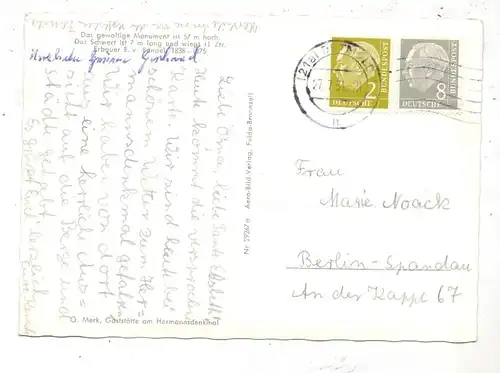 Das gewaltige Monument ist 57 m hoch.
Das Schwert ist 7 m lang und wiegt 11 Ztr.
Erbauer B. v. Bandel, 1838 - 1875
Liebe Oma, liebe Tante Elisabeth!
Heute kommt die versprochene
Karte. Wir sind heute bei
schönem Wetter zum Her-
mannsdenkmal gefahren.
Wir haben von dort
aus eine herrliche Aus-
sicht auf die Berge und
Städte gehabt.
Es grüßt Euch herzlich
Nr 29267 a Aero-Bild Verlag, Fulda-Bronnzell
O. Merk, Gaststätte am Hermannsdenkmal
(21a)
DEUTSCHE BUNDESPOST
2
DEUTSCHE BUNDESPOST
8
Frau
Marie Noack
Berlin-Spandau
An der Kappe 67